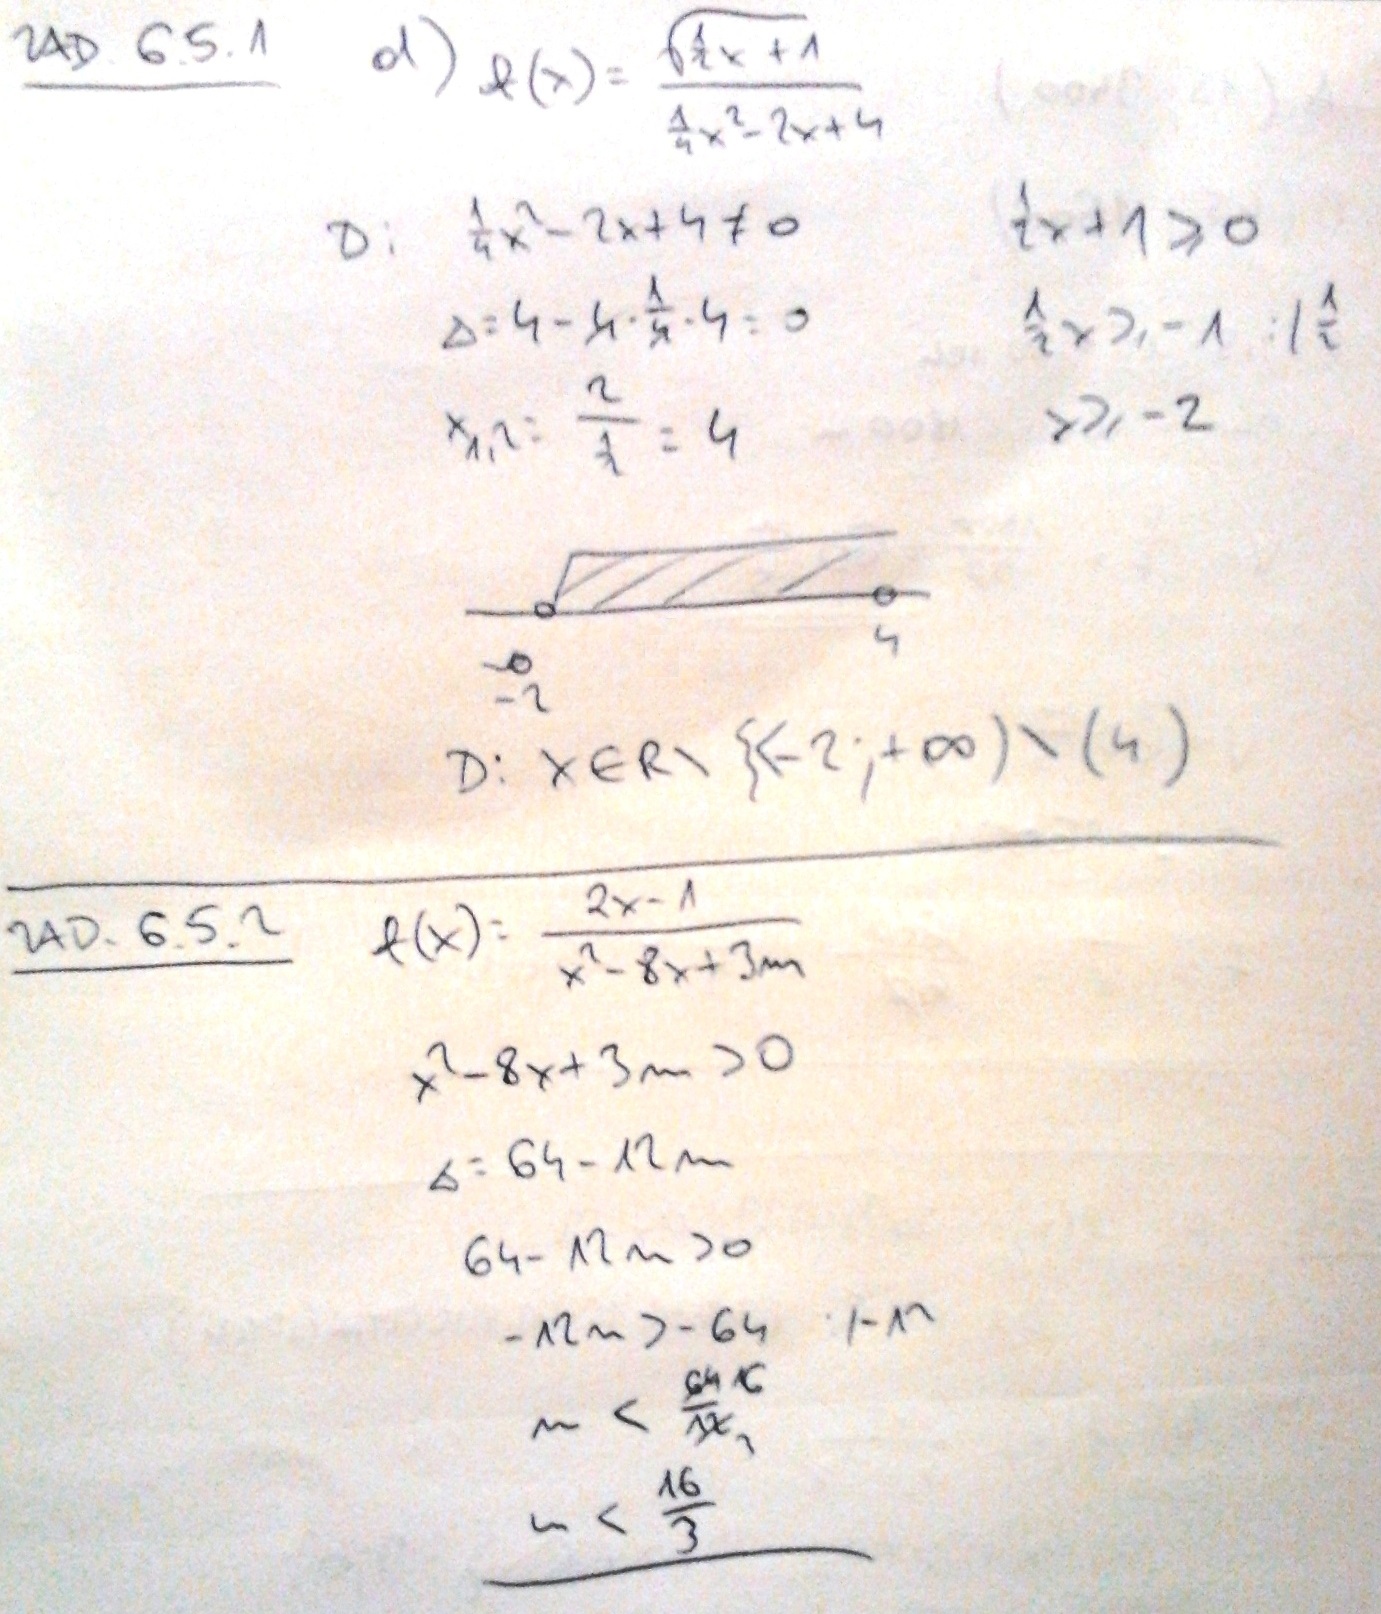 ZAD. 6.5.1 d) f(x) = √(1/2x + 1) / (1/4x² - 2x + 4)
D: 1/4x² - 2x + 4 ≠ 0
1/2x + 1 ≥ 0
Δ = 4 - 4 · 1/4 · 4 = 0
1/2x ≥ -1 :/ 1/2
x1,2 = 2 / (1/2) = 4
x ≥ -2
4
-2
D: X ∈ R \ {<-2; +∞) \ (4)
ZAD. 6.5.2 f(x) = (2x - 1) / (x² - 8x + 3m)
x² - 8x + 3m > 0
Δ = 64 - 12m
64 - 12m > 0
-12m > -64 :/-12
m < 64/12 16/3
m < 16/3